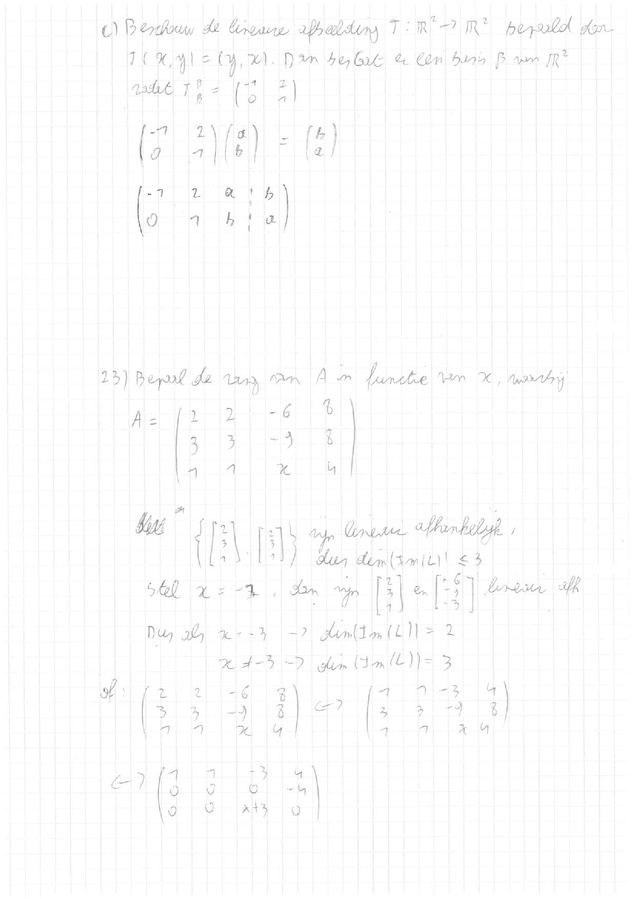 c) Beschouw de lineaire afbeelding T: ℝ² → ℝ² bepaald door
T(x,y) = (y,x). Dan bestaat er een basis β van ℝ²
zodat T_β^β = (-1 2; 0 1)
(-1 2; 0 1)(a; b) = (b; a)
(-1 2 a ¦ b; 0 1 b ¦ a)
23) Bepaal de rang van A in functie van x, waarbij
A = (2 2 -6 8; 3 3 -9 8; 1 1 x 4)
{[2; 3; 1], [2; 3; 1]} zijn lineair afhankelijk,
dus dim(Im(L)) ≤ 3
Stel x = -3, dan zijn [2; 3; 1] en [-6; -9; -3] lineair afh
Dus als x = -3 → dim(Im(L)) = 2
x ≠ -3 → dim(Im(L)) = 3
of: (2 2 -6 8; 3 3 -9 8; 1 1 x 4) ↔ (1 1 -3 4; 3 3 -9 8; 1 1 x 4)
↔ (1 1 -3 4; 0 0 0 -4; 0 0 x+3 0)